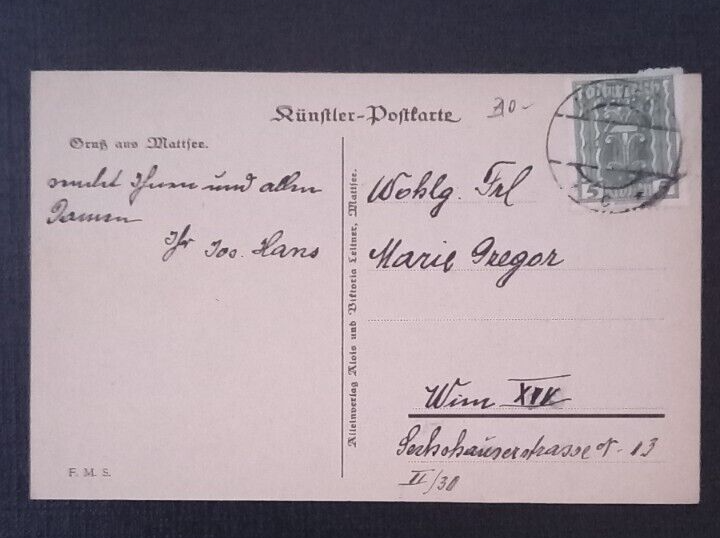 Künstler-Postkarte
Gruß aus Mattsee.
sendet Ihnen und allen
Damen
Ihr Jos. Hans
Alleinverlag Alois und Viktoria Leitner, Mattsee.
Wohlg. Frl
Marie Gregor
Wien XIV
Sechshauserstrasse Nr. 13
II/30
F. M. S.
5 5